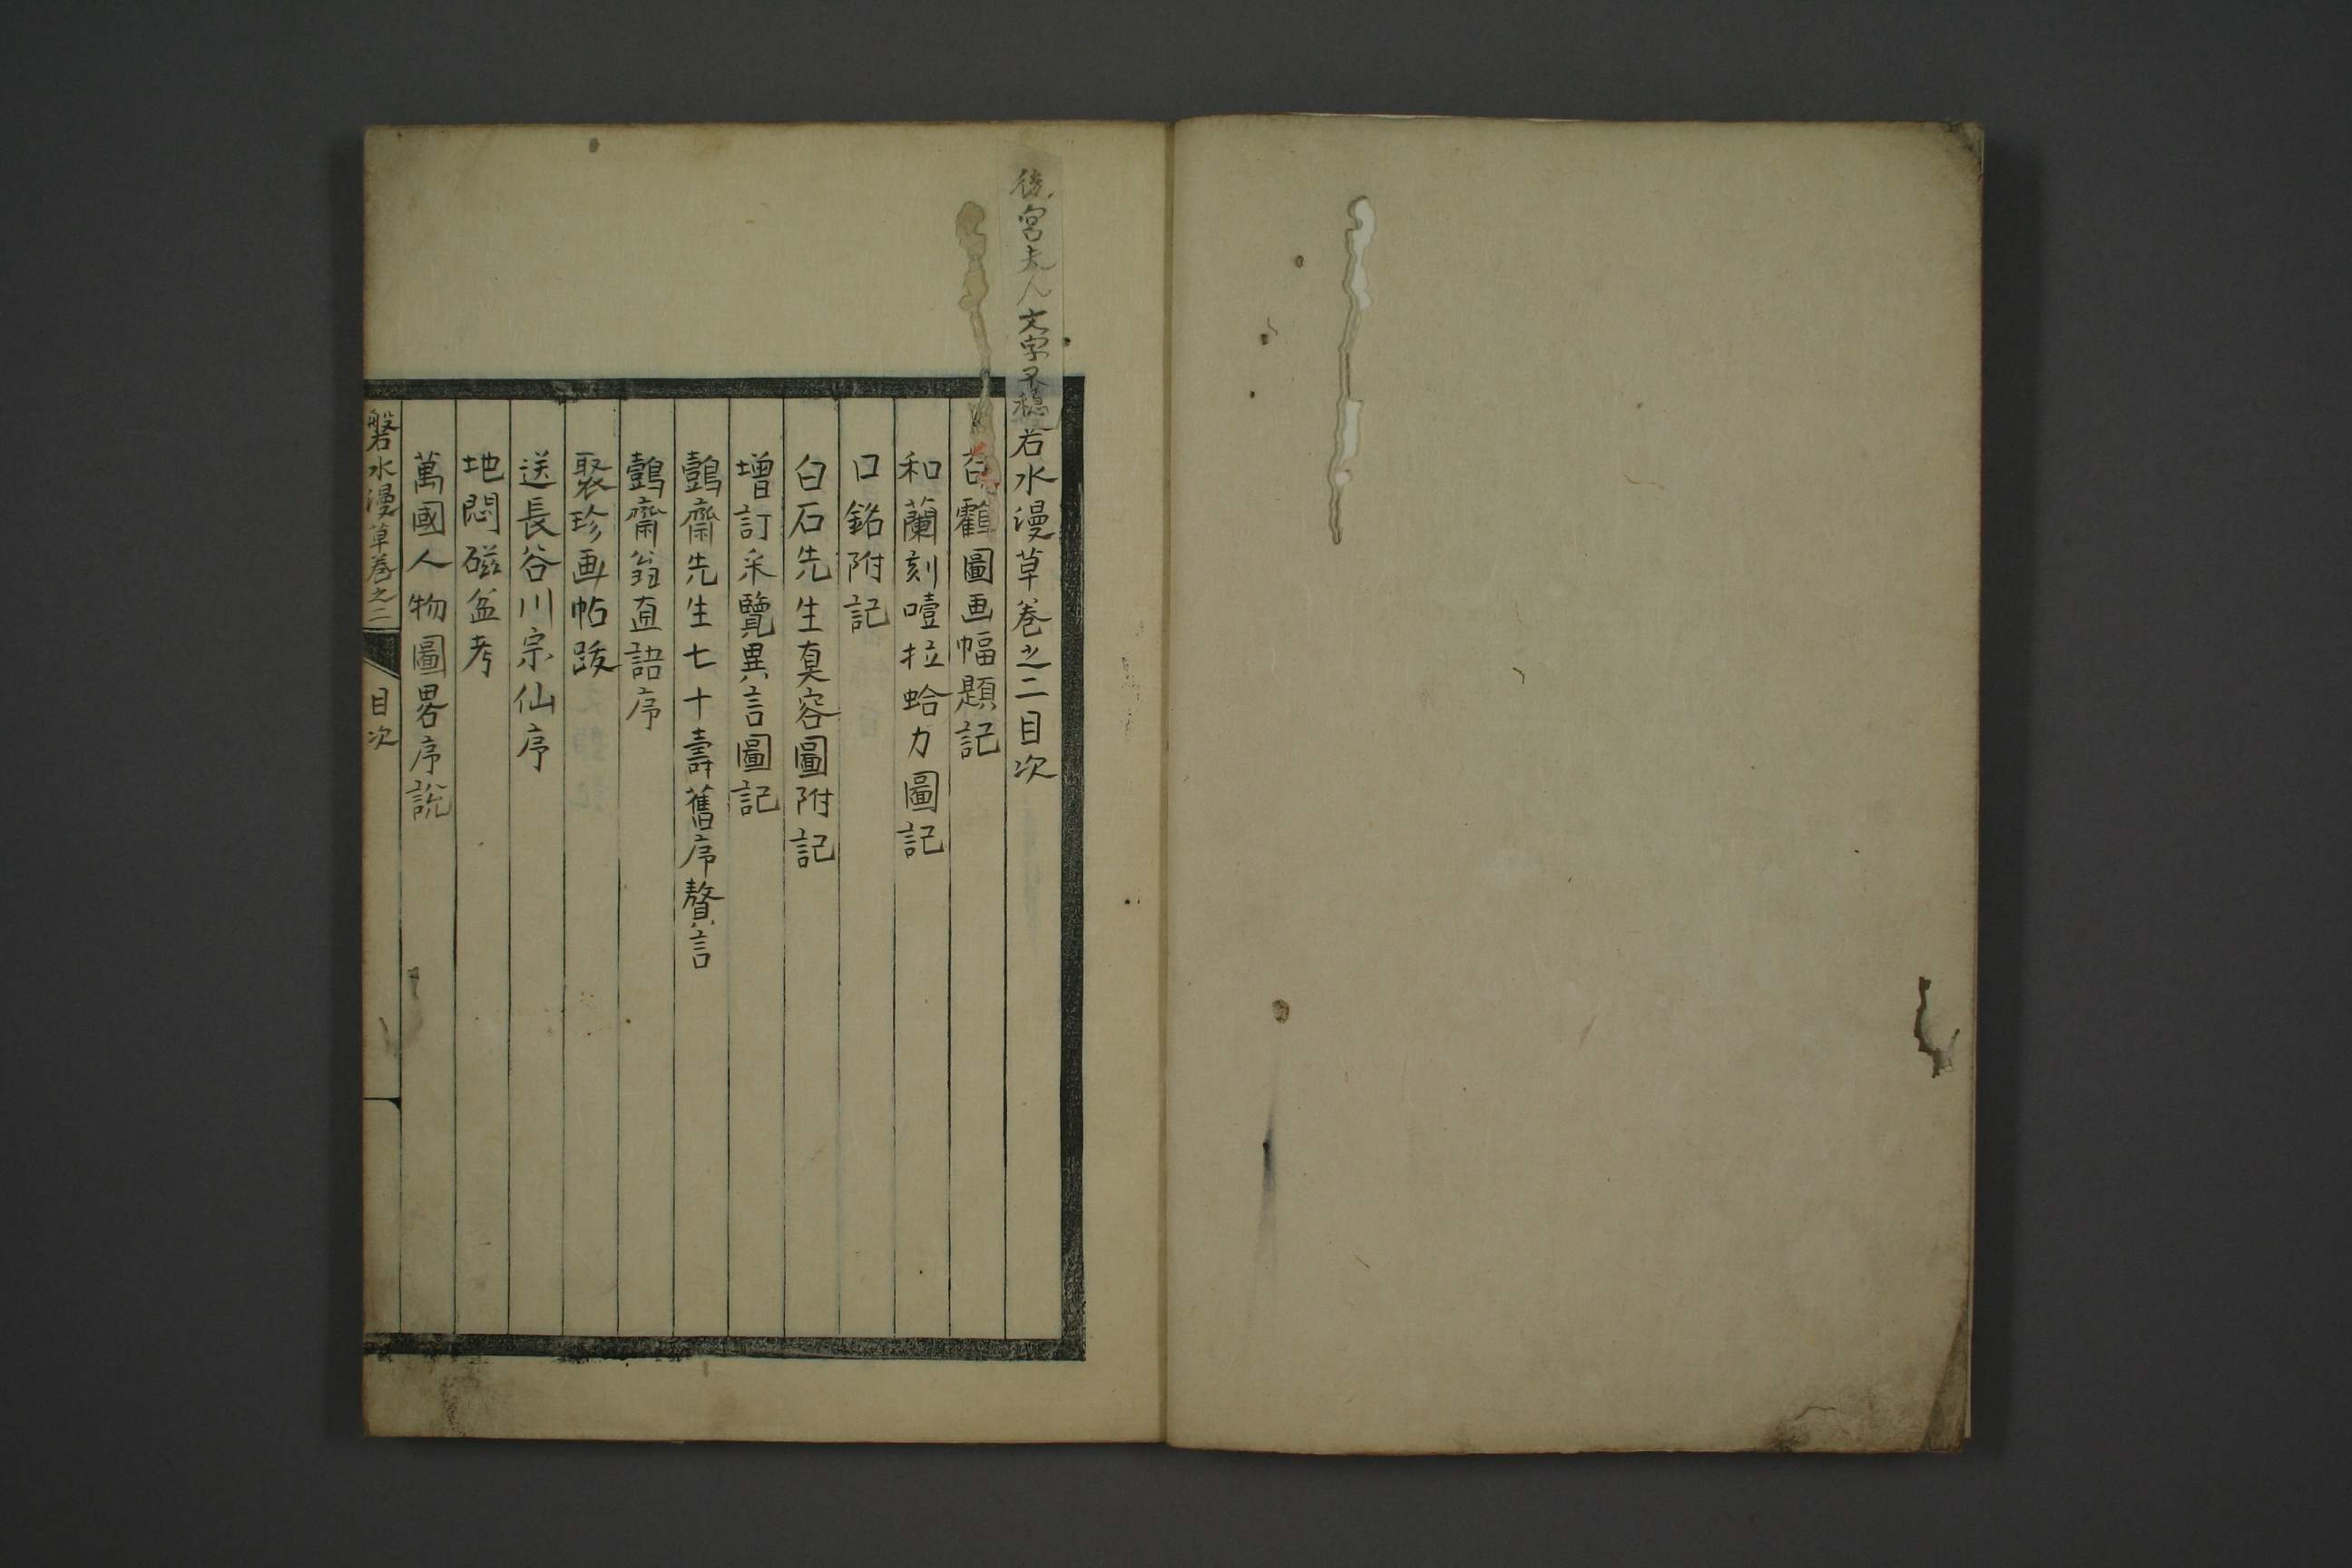 後宮夫人文字不穏
磐水漫草卷之二目次
圖画幅題記
和蘭刻噎拉蛤力圖記
口銘附記
白石先生真容圖附記
増訂采覽異言圖記
鷧齋先生七十壽舊序贅言
鷧齋翁直語序
聚珍画帖跋
送長谷川宗仙序
地悶磁盆考
萬國人物圖畧序說
磐水漫草卷之二 目次